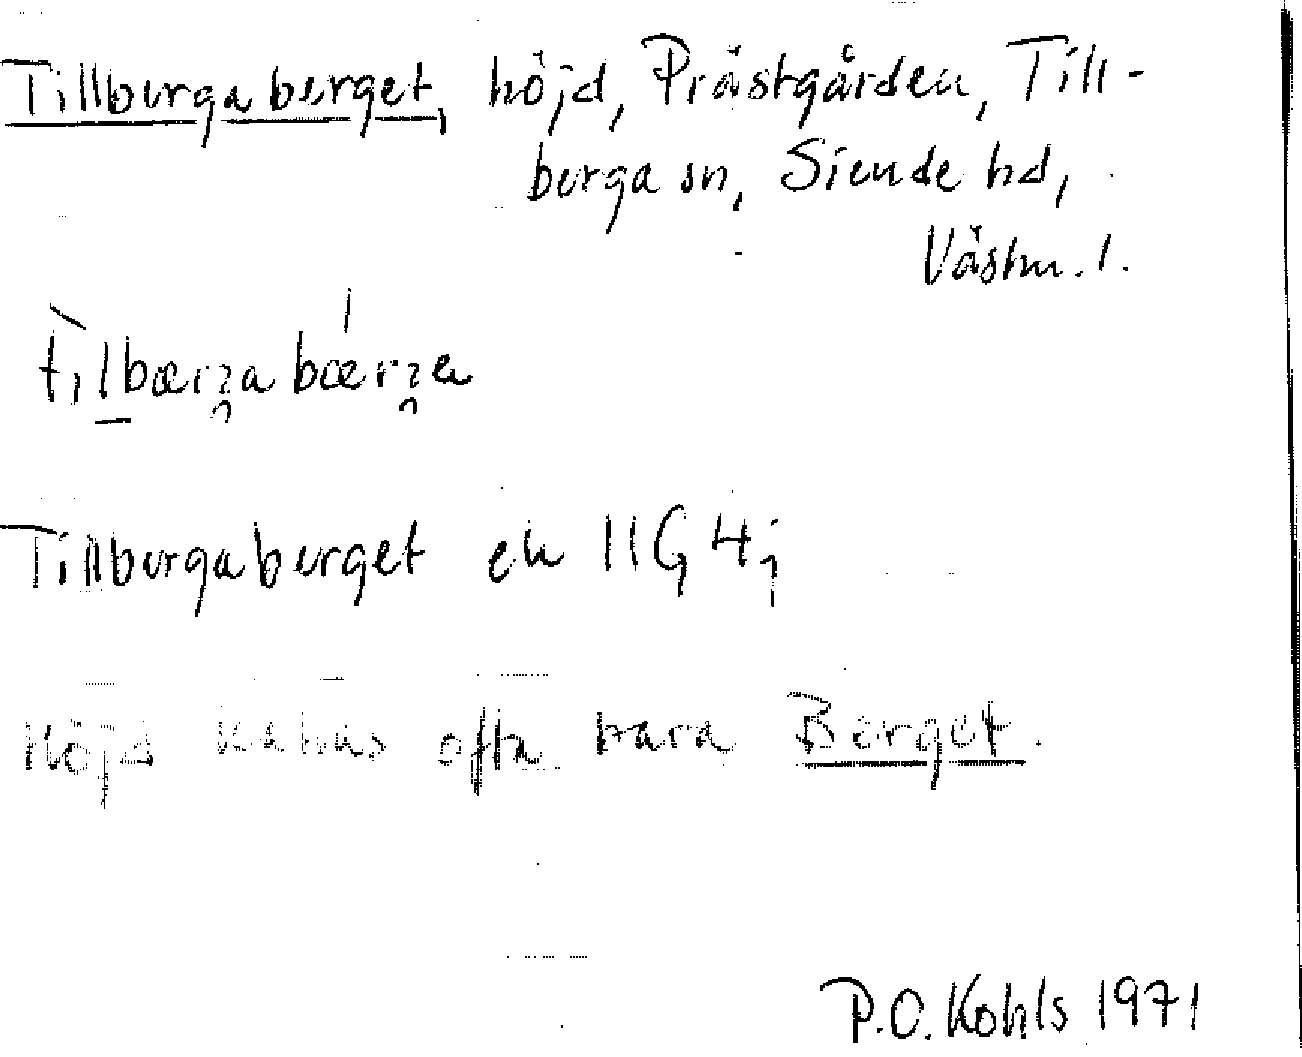 Tillbergaberget, höjd, Prästgården, Till-
berga sn, Siende hd,
Västm. l.
Tillbergaberget ek 11G 4j
Höjd kallas ofta bara Berget.
P.O. Kohls 1971